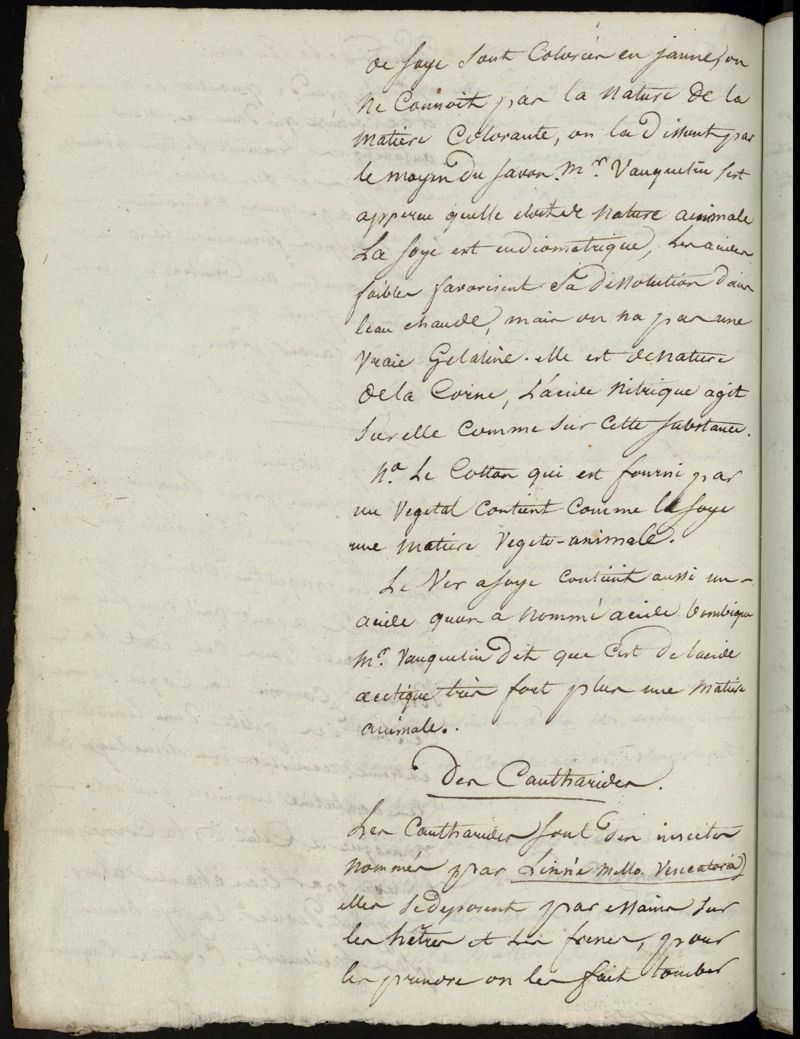 de soye sont Colorées en jaune, on
ne Connoit pas la nature de la
matiere Colorante, on la Dissout par
le moyen du savon. Mr. Vauquelin s'est
apperçu quelle etoit de nature animale
La soye est eudiometrique, Les acides
foibles favorisent Sa Dissolution dans
leau chaude, mais on na pas une
Vraie Gelatine. elle est de nature
de la Corne, L'acide Nitrique agit
sur elle comme sur Cette substance.
Na. Le Cotton qui est fourni par
un Vegetal Contient Comme la soye
une matiere Vegeto-animale.
Le Ver a soye contient aussi un
acide quon a nommé acide bombique
Mr. Vauquelin Dit que C'est de lacide
acetique très fort plus une matiere
animale.
Des Cantharides.
Les Cantharides sont des insectes
nommés par Linnée Mello. Vesicatoria)
elles se deposent par essaims sur
les hêtres et les frenes, pour
les prendre on les fait tomber